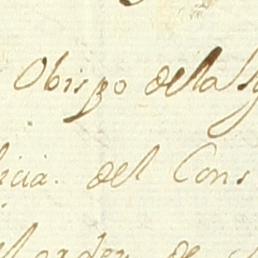 Obispo de la
del Cons
orden de